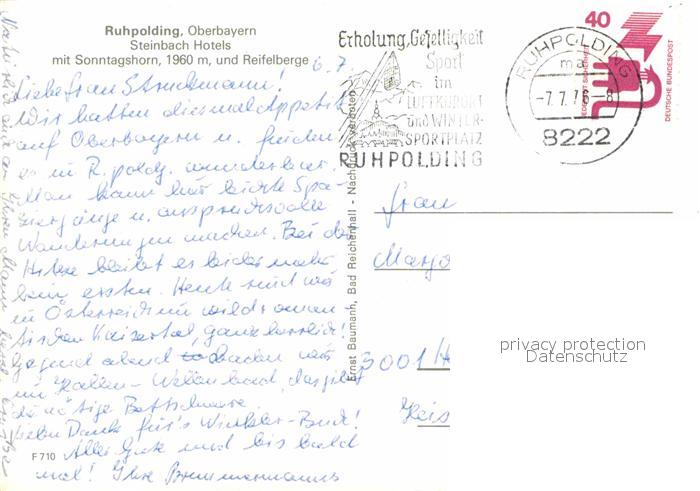 Ruhpolding, Oberbayern
Steinbach Hotels
mit Sonntagshorn, 1960 m, und Reifelberge
6. 7.
Liebe Frau
Wir hatten diesmal Appetit
auf Oberbayern u. finden
es in R.poldg. wunderbar.
Man kann hier leichte Spa-
ziergänge u. anspruchsvolle
Wanderungen machen. Bei der
Hitze bleibt es leider meist
beim ersten. Heute sind wir
in Österreich im wildroman
tischen Kaisertal, ganz herrlich!
Gegend abend baden wir
im Hallen-Wellenbad, das gibt
die nötige Bettschwere
Vielen Dank für's Winkler-Buch!
Alles Gute und bis bald
mal! Ihre
F 710
Ernst Baumann, Bad Reichenhall - Nachdruck verboten
Erholung, Geselligkeit
Sport
im
LUFTKURORT
und WINTER-
SPORTPLATZ
RUHPOLDING
RUHPOLDING
ma
-7.7.76-8
8222
40
JEDERZEIT SICHERHEIT
DEUTSCHE BUNDESPOST
Frau
Margo
3001 H
privacy protection
Datenschutz